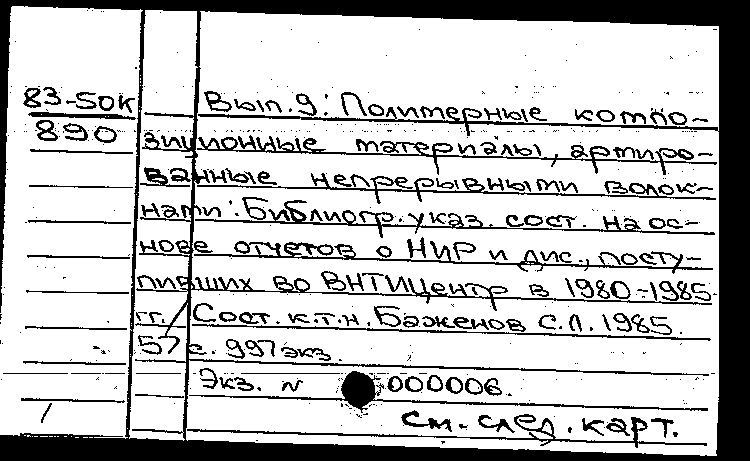 83-50к Вып.9: Полимерные компо-
890 зиционные материалы, артиро-
ванные непрерывными волок-
нами: Библиогр. указ. сост. на ос-
нове отчетов о НИР и дис., посту-
пивших во ВНТИЦентр в 1980-1985
гг./ Сост. к.т.н. Баженов С.Л. 1985.
57 с. 997 экз.
Экз. N 000006.
/ см. след. карт.